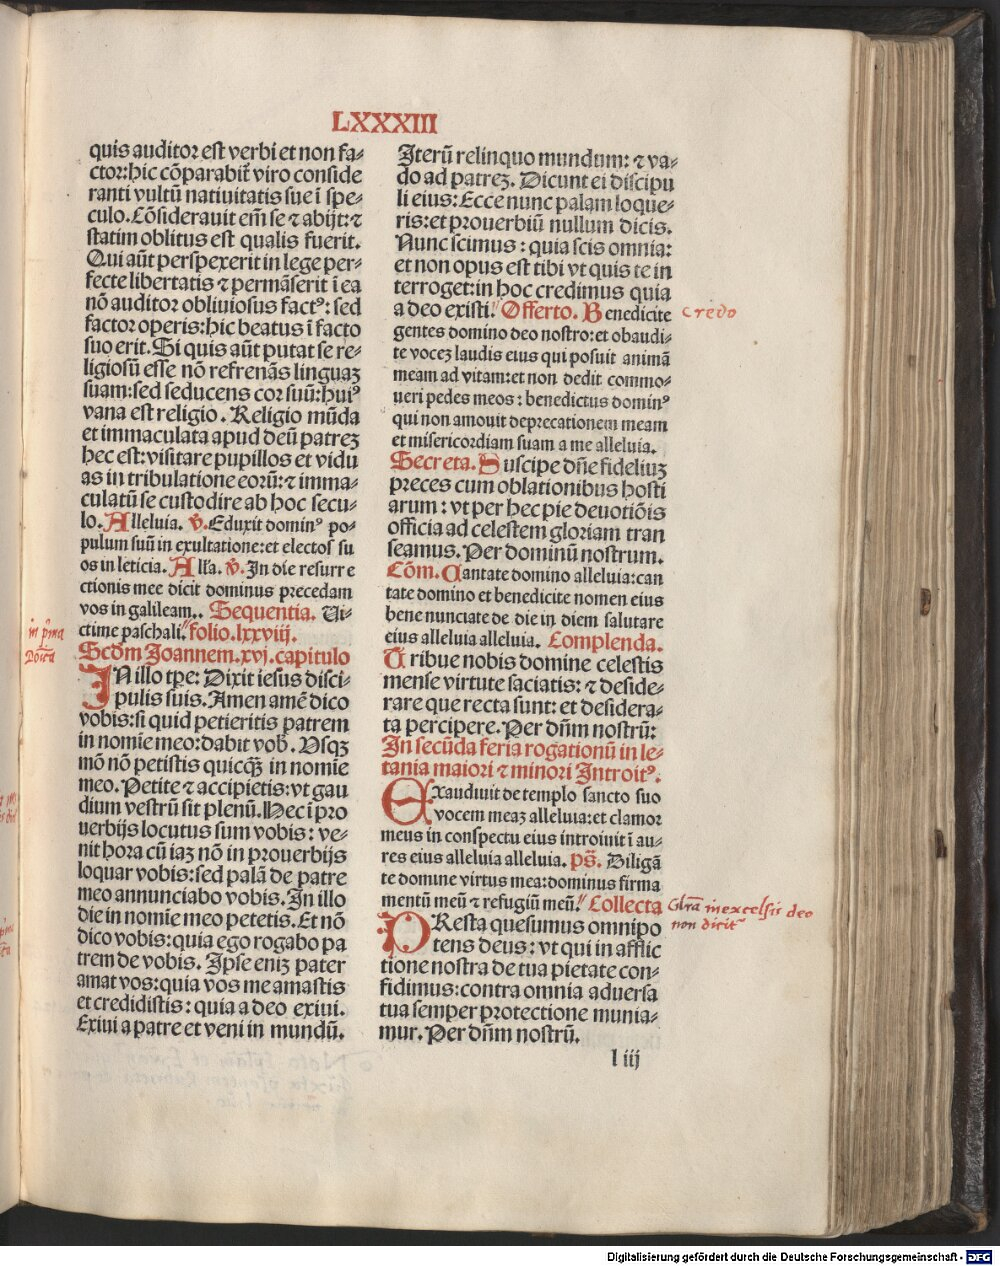 LXXXIII
quis auditor est verbi et non fa⸗
ctor: hic cōparabit̄ viro conside
ranti vultū natiuitatis sue ī spe⸗
culo. Cōsiderauit em̄ se ⁊ abijt: ⁊
statim oblitus est qualis fuerit.
Qui aūt perspexerit in lege per⸗
fecte libertatis ⁊ permāserit ī ea
nō auditor obliuiosus factꝰ: sed
factor operis: hic beatus ī facto
suo erit. Si quis aūt putat se re⸗
ligiosū esse nō refrenās linguaꝫ
suam: sed seducens cor suū: huiꝰ
vana est religio. Religio mūda
et immaculata apud deū patreꝫ
hec est: visitare pupillos et vidu
as in tribulatione eorū: ⁊ imma⸗
culatū se custodire ab hoc secu⸗
lo. Alleluia. v̄. Eduxit dominꝰ po⸗
pulum suū in exultatione: et electos su
os in leticia. All'a. v̄. In die resurre
ctionis mee dicit dominus precedam
vos in galileam.. Sequentia. Ui⸗
ctime paschali. folio. lxxviij.
Scdm Joannem. xvj. capitulo
IN illo tp̄e: Dixit iesus disci⸗
pulis suis. Amen amē dico
vobis: si quid petieritis patrem
in nomīe meo: dabit vob̄. Vsqꝫ
mō nō petistis quicqꝫ̄ in nomīe
meo. Petite ⁊ accipietis: vt gau
dium vestrū sit plenū. Hec ī pro
uerbijs locutus sum vobis: ve⸗
nit hora cū iaꝫ nō in prouerbijs
loquar vobis: sed palā de patre
meo annunciabo vobis. In illo
die in nomīe meo petetis. Et nō
dico vobis: quia ego rogabo pa
trem de vobis. Ipse eniꝫ pater
amat vos: quia vos me amastis
et credidistis: quia a deo exiui.
Exiui a patre et veni in mundū.
Iterū relinquo mundum: ⁊ va⸗
do ad patreꝫ. Dicunt ei discipu
li eius: Ecce nunc palam loque⸗
ris: et prouerbiū nullum dicis.
Nunc scimus: quia scis omnia:
et non opus est tibi vt quis te in
terroget: in hoc credimus quia
a deo existi. Offerto. Benedicite
credo
gentes domino deo nostro: et obaudi⸗
te voceꝫ laudis eius qui posuit animā
meam ad vitam: et non dedit commo⸗
ueri pedes meos: benedictus dominꝰ
qui non amouit deprecationem meam
et misericordiam suam a me alleluia.
Secreta. Suscipe dn̄e fideliuꝫ
preces cum oblationibus hosti
arum: vt per hec pie deuotiōis
officia ad celestem gloriam tran
seamus. Per dominū nostrum.
Cōm. Cantate domino alleluia: can
tate domino et benedicite nomen eius
bene nunciate de die in diem salutare
eius alleluia alleluia. Complenda.
Tribue nobis domine celestis
mense virtute saciatis: ⁊ deside⸗
rare que recta sunt: et desidera⸗
ta percipere. Per dn̄m nostrū:
In secūda feria rogationū in le⸗
tania maiori ⁊ minori Introitꝰ.
EXaudiuit de templo sancto suo
vocem meaꝫ alleluia: et clamor
meus in conspectu eius introiuit ī au⸗
res eius alleluia alleluia. ps̄. Diligā
te domine virtus mea: dominus firma
mentū meū ⁊ refugiū meū. Collecta
Gl̄ra in excelsis deo
non dicit᷑
PResta quesumus omnipo
tens deus: vt qui in afflic
tione nostra de tua pietate con⸗
fidimus: contra omnia aduersa
tua semper protectione munia⸗
mur. Per dn̄m nostrū.
l iij
Digitalisierung gefördert durch die Deutsche Forschungsgemeinschaft - DFG